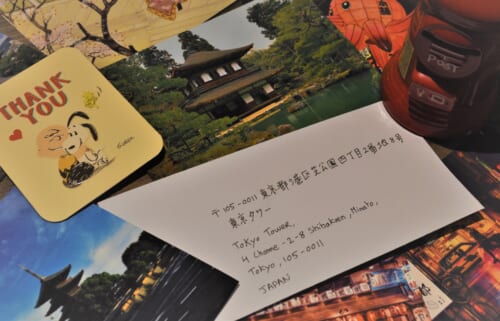 THANK
YOU
POST
〒105-0011 東京都港区芝公園四丁目2番地8号
東京タワー
Tokyo Tower,
4 Chome-2-8 Shibakoen, Minato,
Tokyo, 105-0011
JAPAN